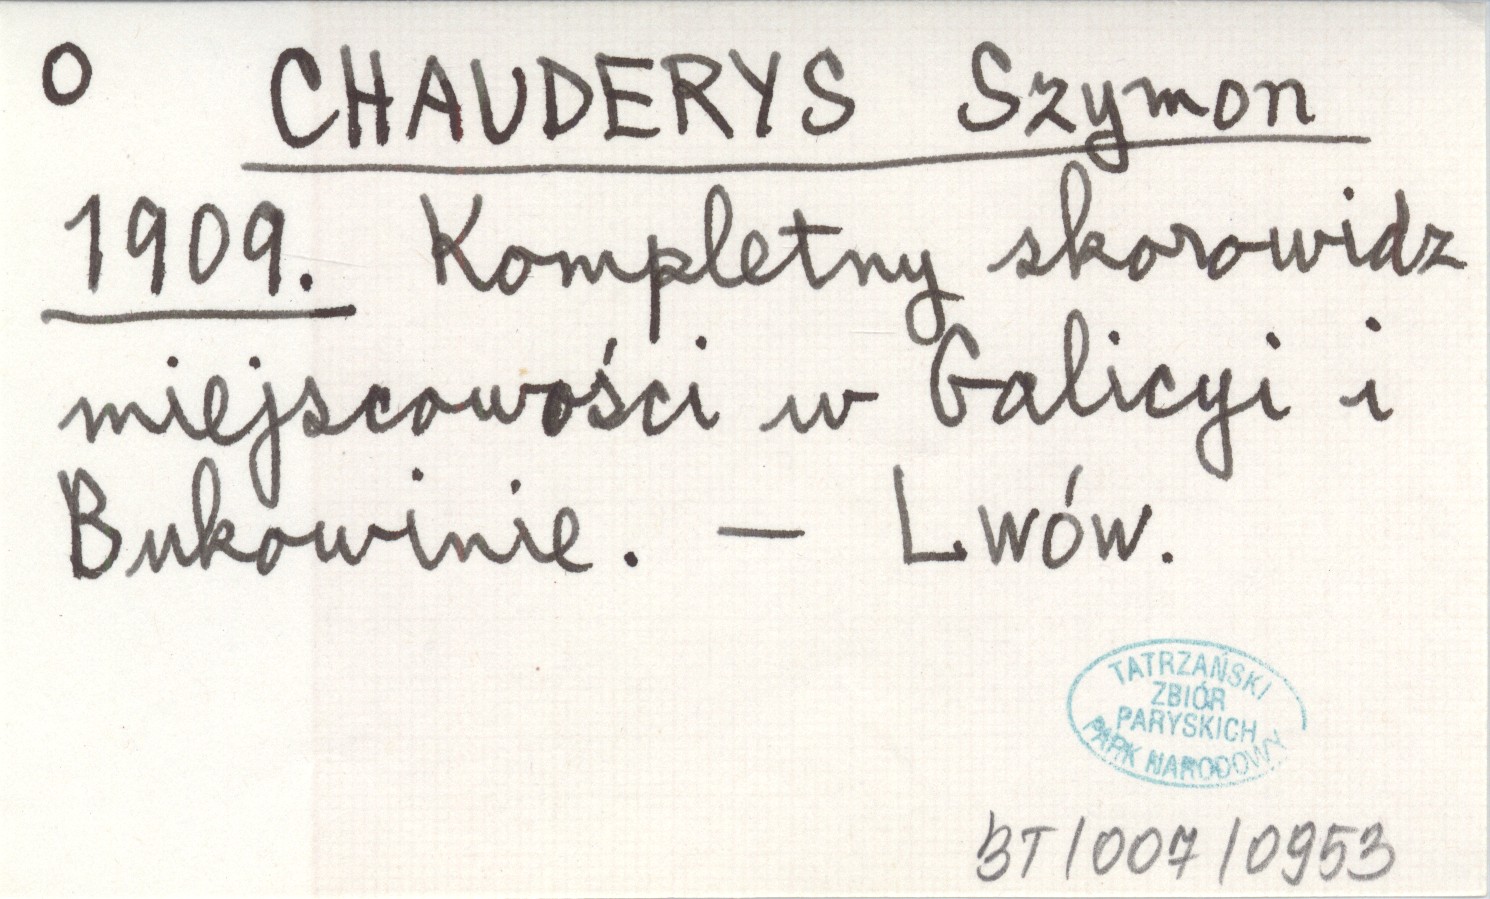 O CHAUDERYS Szymon
1909. Kompletny skorowidz
miejscowości w Galicyi i
Bukowinie. — Lwów.
TATRZAŃSKI
ZBIÓR
PARYSKICH
PARK NARODOWY
BT/007/0953